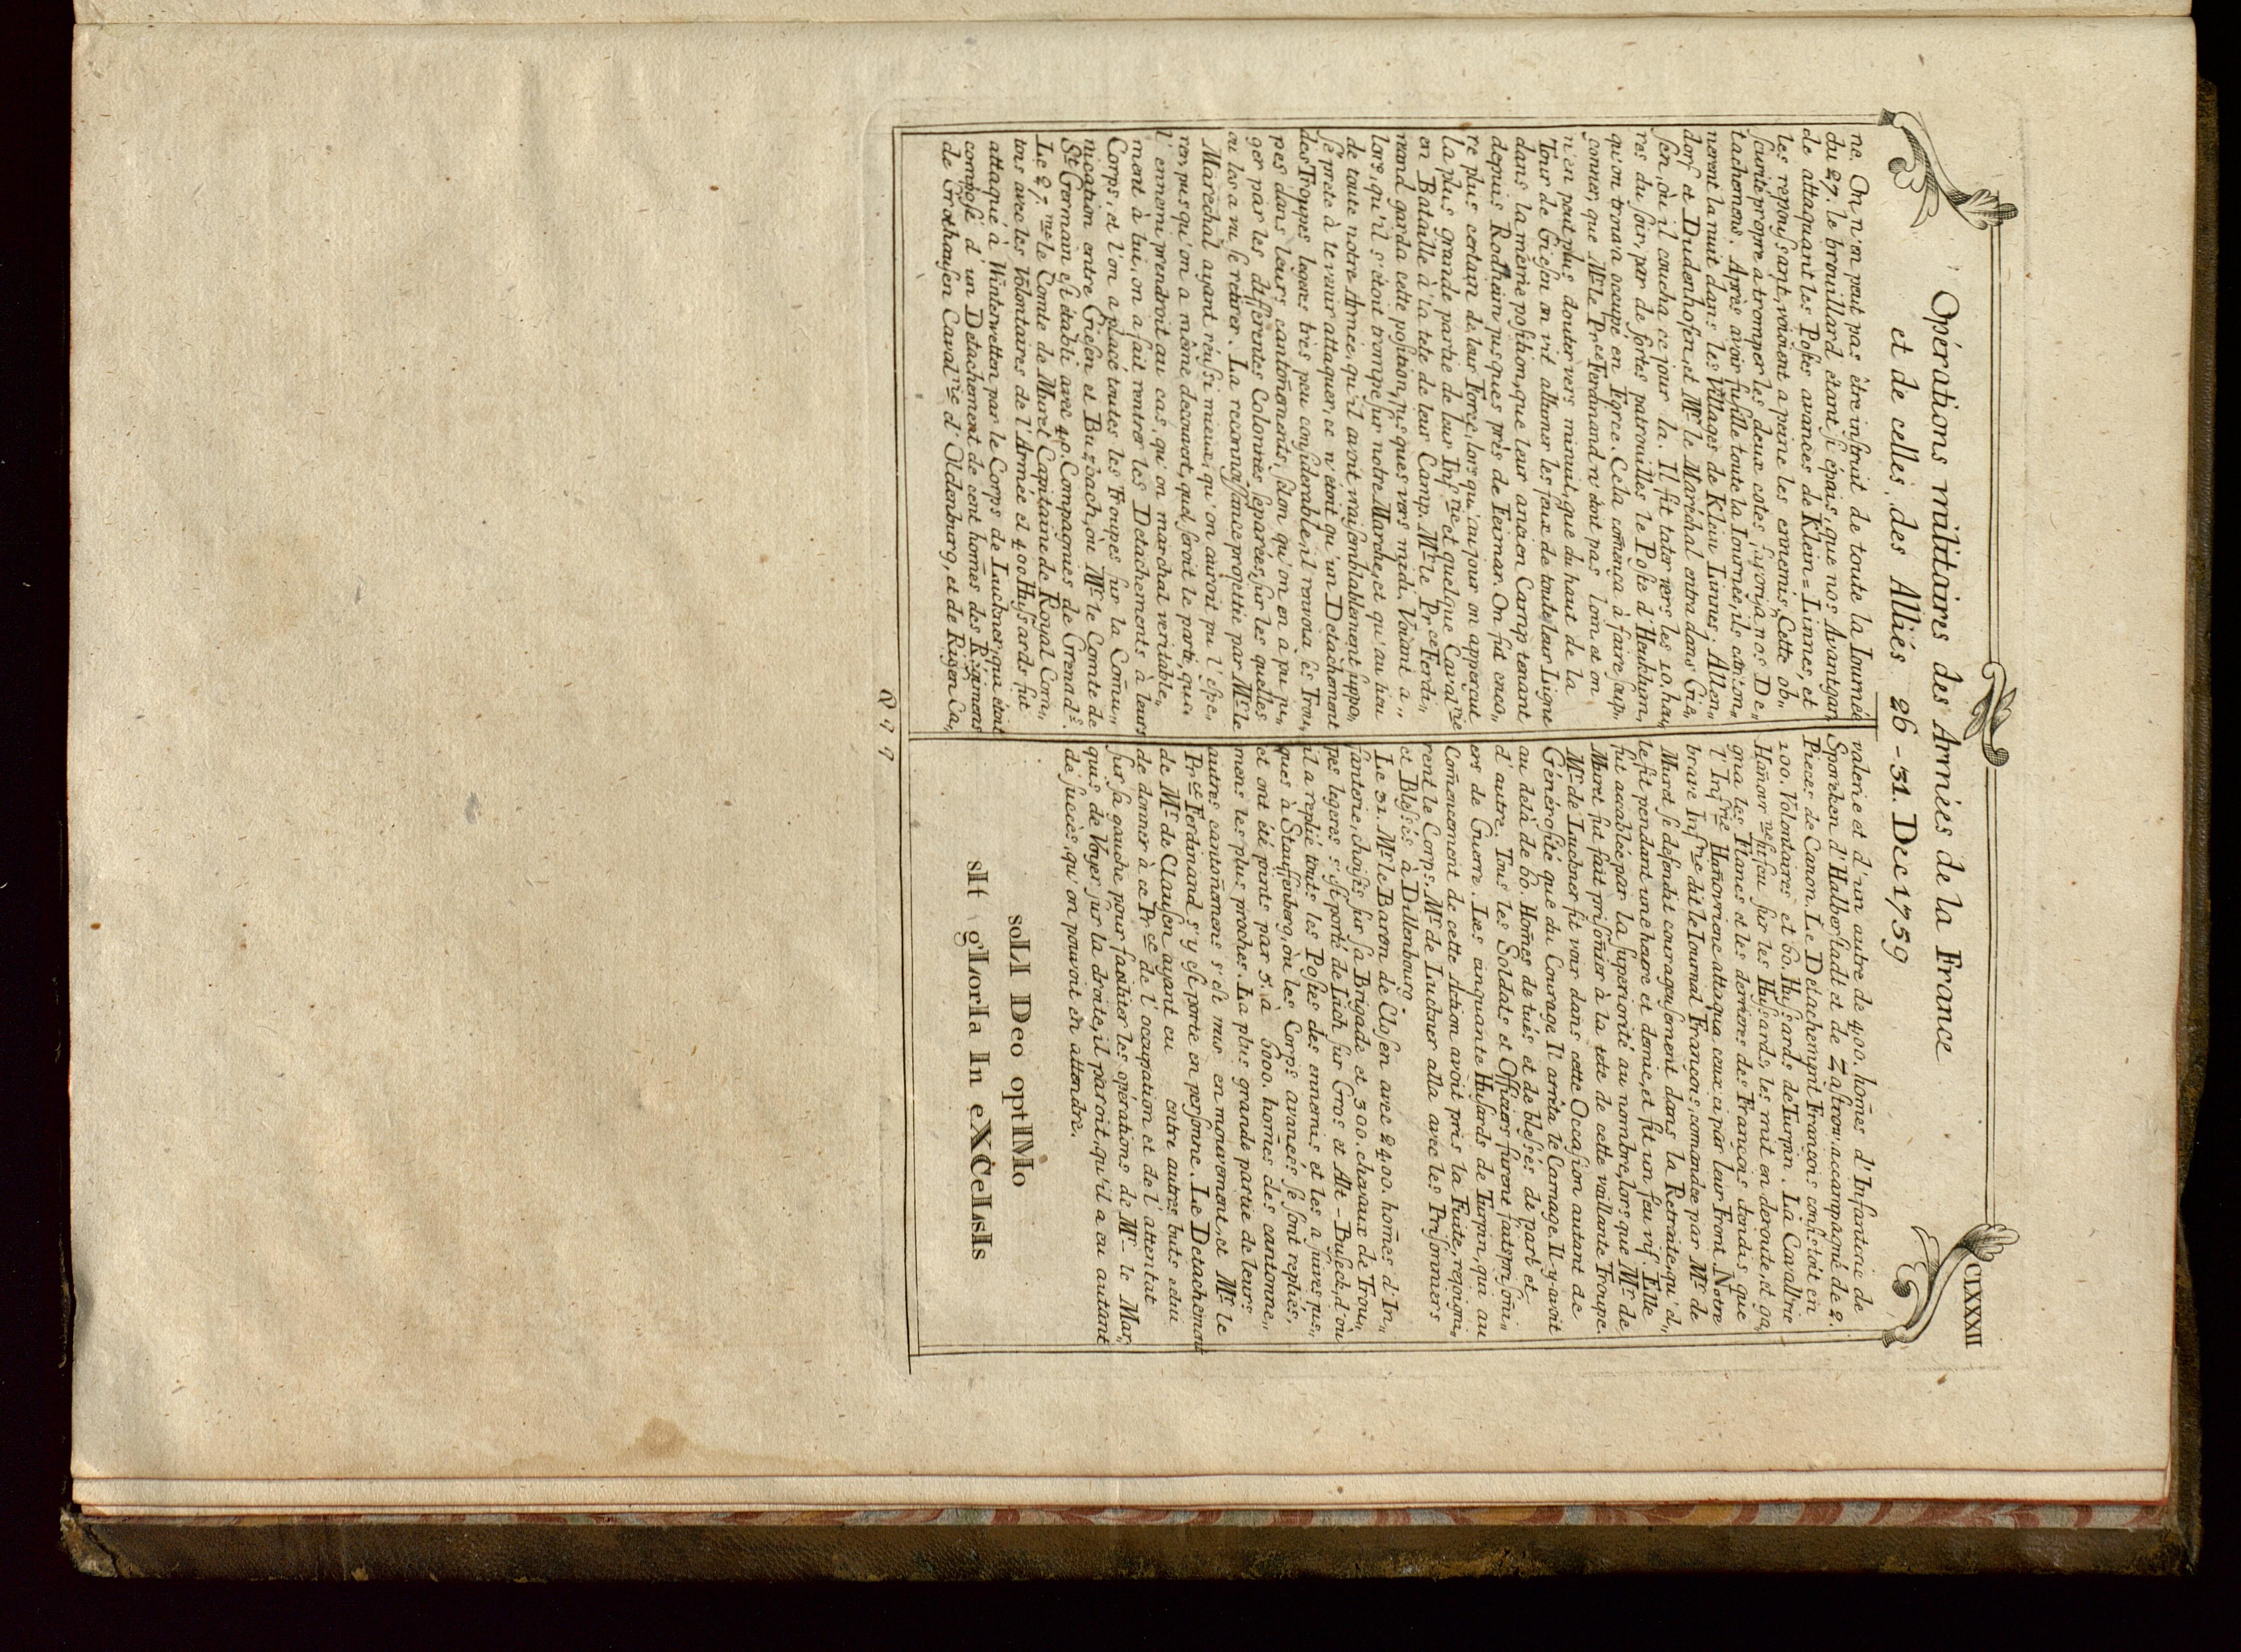 CLXXXII
Opérations militaires des Armées de la France
et de celles, des Alliés 26-31. Dec 1759
ne. On n'en peut pas être inſtruit de toute la Iournée
du 27. le brouillard étant ſi épais, que nos Avantgar
de attaquant les Poſtes avancés de Klein=Linnes, et
les repouſsant, voioient a peine les ennemis, Cette ob„
ſcurité propre a tromper les deux cotes, ſugorja nos De„
tachemens. Après avoir fuſillé toute la Iournée, ils canton„
nerent la nuit dans les Villages de Klein Linnes, Allen„
dorf et Dudenhofen, et Mr. le Maréchal entra dans Gie„
ſen, où il coucha ce jour la. Il fit tater vers les 10. heu„
res du ſoir, par de fortes patrouilles le Poſte d'Heukelum,
qu'on trouva occupé en Egree. Cela comença à faire ſoup„
conner, que Mr. le Prce Ferdinand n'etoit pas loin, et on
n'en peut plus douter vers minuit, que du haut de la
Tour de Gieſen on vit allumer les feux de toute leur Ligne
dans la même poſition, que leur ancien Camp tenant
depuis Rodheim juſques près de Feimar. On fut enco„
re plus certain de leur Force, lors qu'au jour on apperçut
la plus grande partie de leur Infrie et quelque Cavalrie
en Bataille à la tete de leur Camp. Mr. le Prce Ferdi„
nand garda cette poſition, juſques vers midi. Voiant a„
lors, qu'il s'étoit trompé ſur notre Marche, et qu'au lieu
de toute notre Armée, qu'il avoit vraiſemblablement ſuppo„
ſé prete à le venir attaquer, ce n'étoit qu'un Detachement
des Troupes legeres très peu conſiderable, il renvoia ſes Trou„
pes dans leurs cantoñements, ſelon qu'on en a pu ju„
ger par les diferentes Colomnes ſeparées, ſur les quelles
on les a vu ſe retirer. La reconnoiſſance projettée par Mr. le
Maréchal ayant réuſsi mieux, qu'on auroit pu l'eſpe„
rer, puis qu'on a même decouvert, quel ſeroit le parti, que
l'ennemi prendroit au cas, qu'on marchat veritable„
ment à lui, on a fait rentrer les Detachements à leurs
Corps, et l'on a placé toutes les Troupes ſur la Comu„
nication entre Gieſen et Buzbach, où Mr. le Comte de
St. Germain eſt établi avec 40. Compagnies de Grenads.
Le 27.me le Comte de Muret Capitaine de Royal Com„
tois avec les Volontaires de l'Armée et 400 Huſsards fut
attaqué à Winterwetten par le Corps de Luckner, qui étoit
compoſé d'un Detachement de cent homes des Régimens
de Grothauſen Cavalrie d'Oldenburg, et de Reiſen Ca„
Qqq
valerie et d'un autre de 400. homes d'Infanterie de
Sporcken d'Halberſtadt et de Zaſtrow, accompagné de 2.
Pieces de Canon. Le Detachement François conſiſtoit en
100. Volontaires et 60. Huſsards de Turpin. La Cavallrie
Hañovrne fit feu ſur les Huſsards, les mit en deroute, et ga„
gna les Flancs et les derrieres des François, tandis que
l'Infrie Hañovriene attaqua ceux ci par leur Front. Notre
brave Infrie dit le Iournal François, comandée par Mr. de
Muret ſe defendit courageuſement dans la Retraite, qu'el„
le fit pendant une heure et demie, et fit un feu vif. Elle
fut accablée par la ſuperiorité au nombre, lors que Mr. de
Muret fut fait priſonier à la tete de cette vaillante Troupe.
Mr. de Luckner fit voir dans cette Occaſion autant de
Généroſité que du Courage. Il arrêta le Carnage. Il y avoit
au delà de 60. Homes de tués et de bleſsés de part et
d'autre. Tous les Soldats et Officiers furent faits priſoni„
ers de Guerre. Les cinquante Huſards de Turpin, qui au
Comencement de cette Action avoit pris la Fuite, rejoigni„
rent le Corps. Mr. de Luckner alla avec les Priſonniers
et Bleſsés à Dillenbourg.
Le 31. Mr. le Baron de Cloſen avec 2400. homes d'In„
fanterie, choiſis ſur ſa Brigade et 300. chevaux de Trou„
pes legeres s'eſt porté de Lich ſur Gros et Alt-Buſeck, d'où
il a replié touts les Poſtes des ennemis et les a ſuivis juſ„
ques à Stauffenberg, où les Corps avancés ſe ſont repliés,
et ont été joints par 5. à 6000. homes des cantonne„
mens les plus proches. La plus grande partie de leurs
autres cantonemens s'eſt mis en mouvement, et Mr. le
Prce Ferdinand s'y eſt porté en perſonne. Le Detachement
de Mr. de Clauſen ayant eu entre autres buts celui
de donner à ce Prce de l'occupation et de l'attentat
ſur ſa gauche pour faciliter les opérations de Mr. le Mar„
quis de Voyer ſur la droite, il paroit, qu'il a eu autant
de ſuccès, qu'on pouvoit en attendre.
soLI Deo optIMo
sIt gLorIa In eXCeLsIs